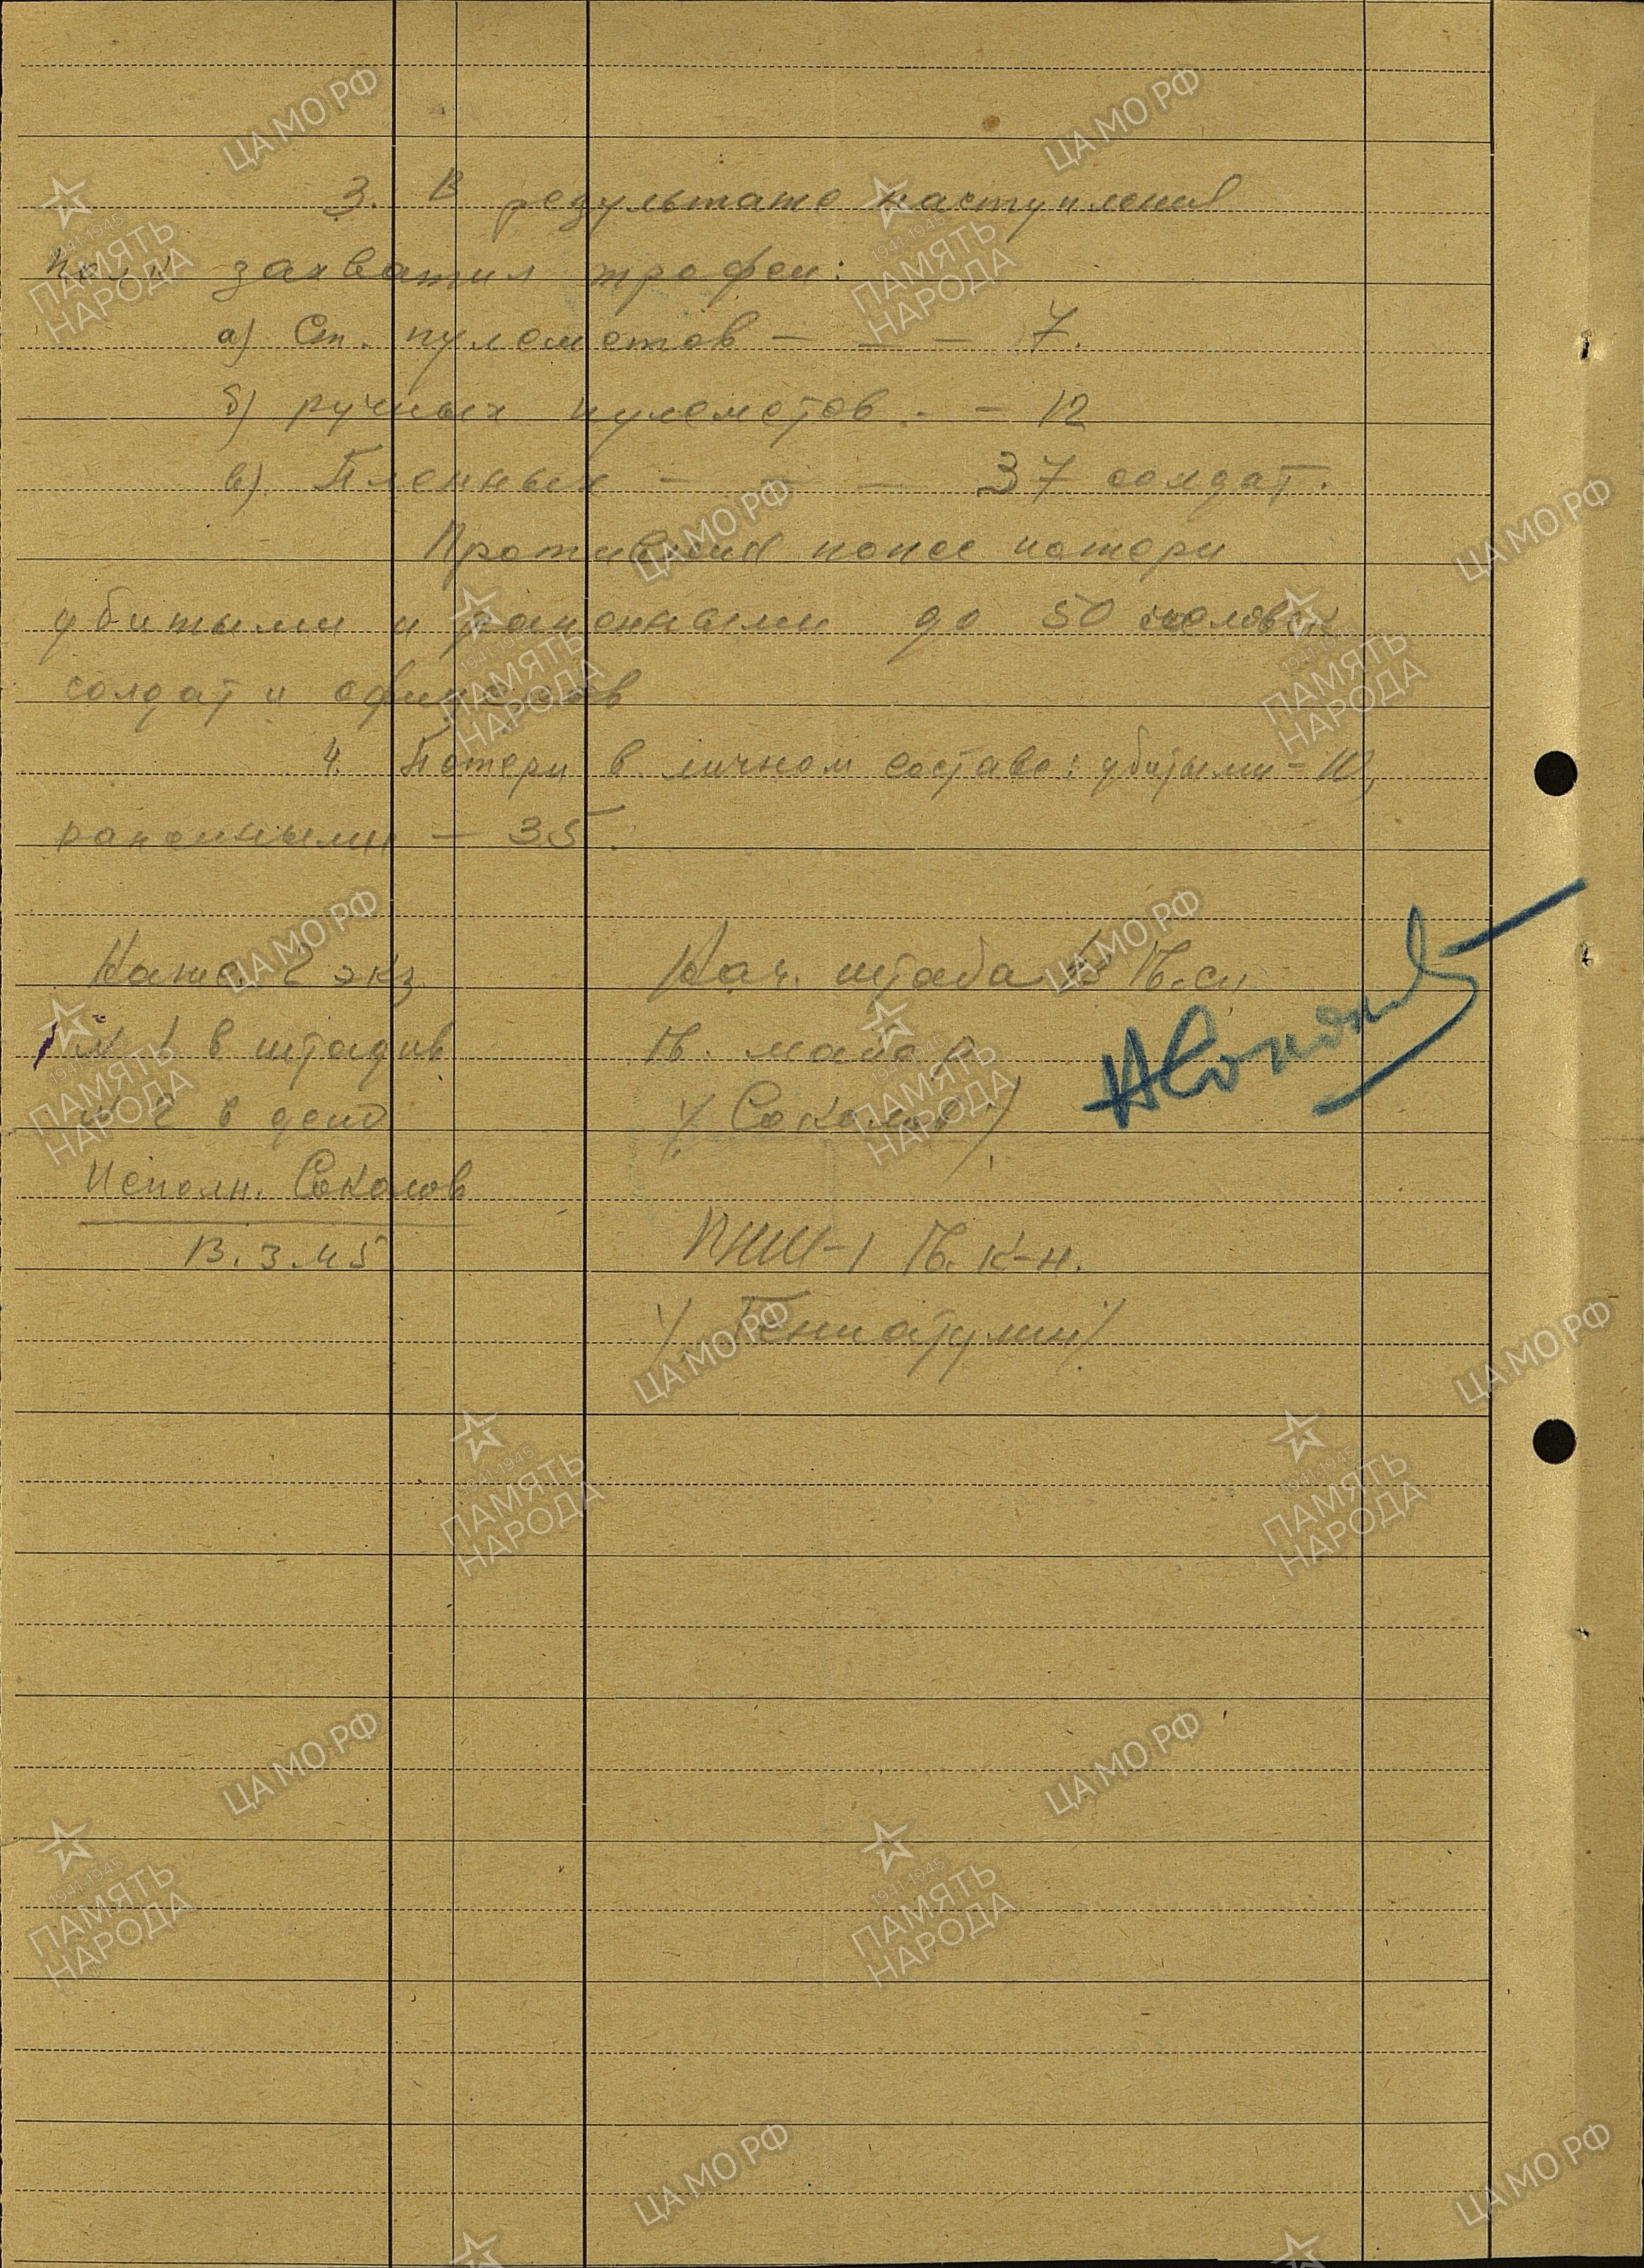 3. В результате наступления
полк захватил трофеи:
а) Ст. пулеметов - - - 7.
б) ручных пулеметов. - 12
в) Пленных - - - 37 солдат.
Противник понес потери
убитыми и ранеными до 50 человек
солдат и офицеров
4. Потери в личном составе: убитыми - 10,
ранеными - 35.
2 экз
№ 1 в штадив
№ 2 в дело
Исполн. Соколов
13.3.45
Нач. штаба
Гв. майор
/ Соколов /
ПНШ-1 Гв. к-н.
ЦАМО РФ
1941-1945
ПАМЯТЬ
НАРОДА